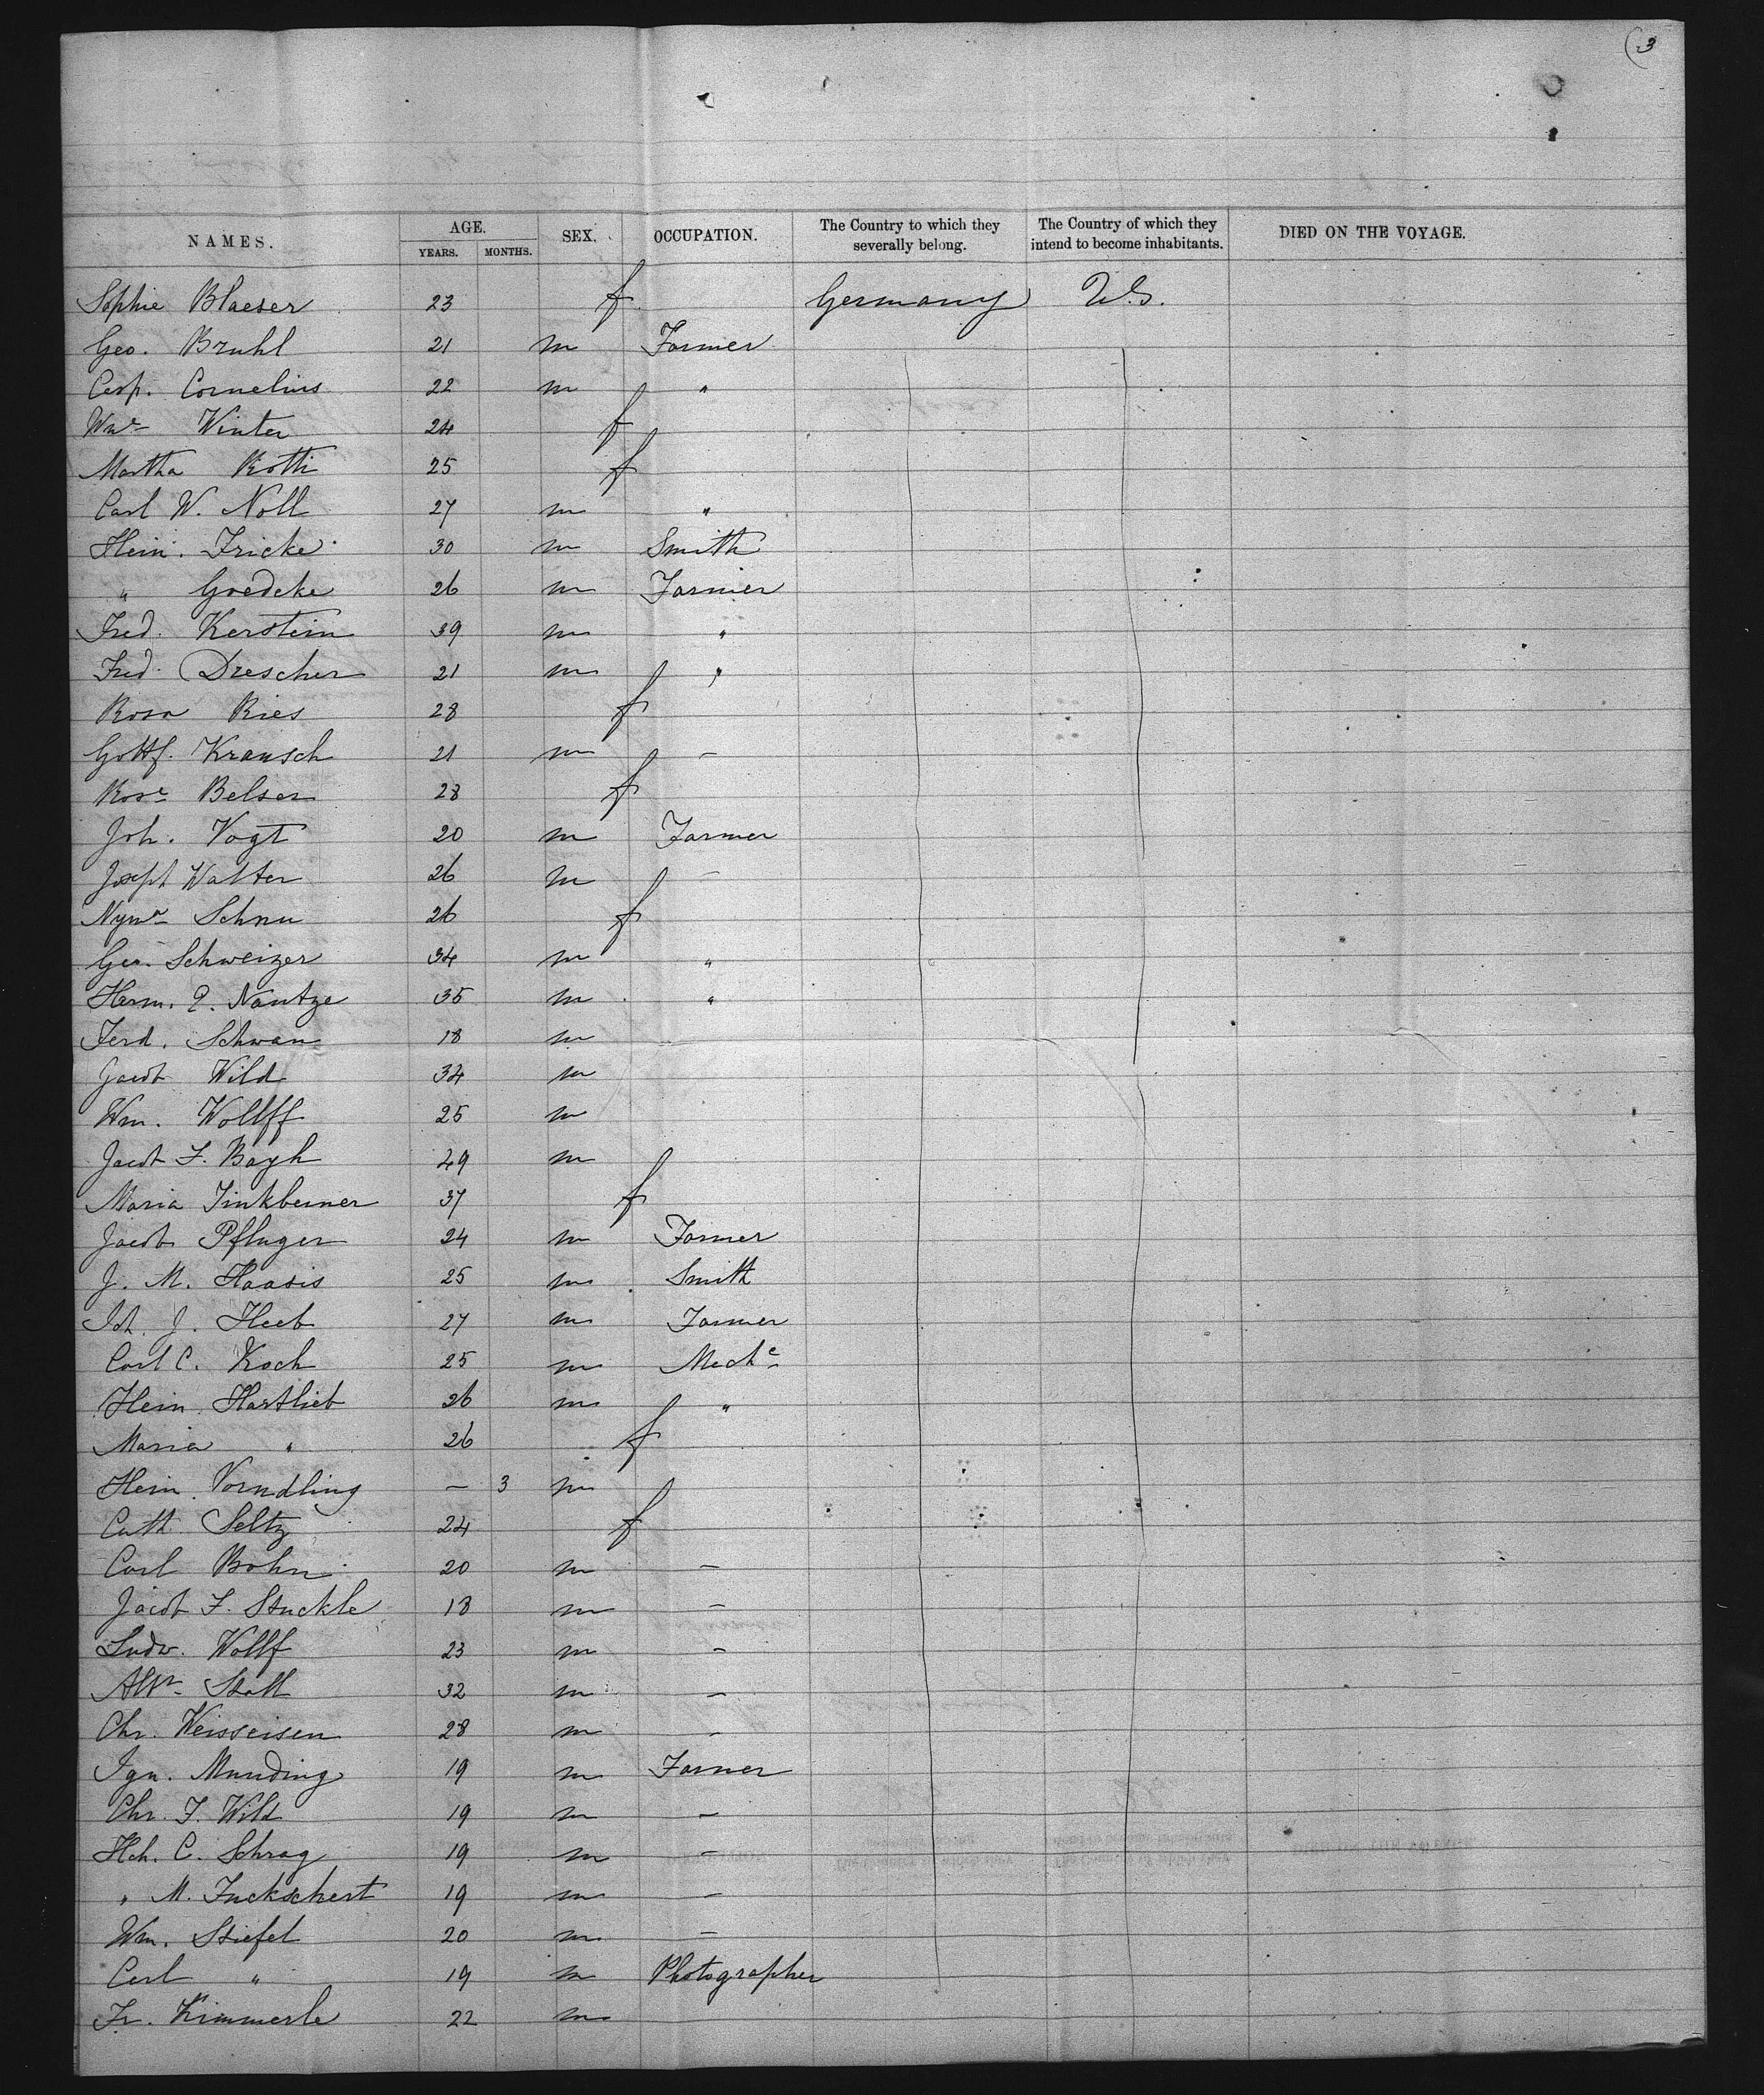 (3
NAMES. AGE. YEARS. MONTHS. SEX. OCCUPATION. The Country to which they severally belong. The Country of which they intend to become inhabitants. DIED ON THE VOYAGE.
Sophie Blaeser 23 f Germany U.S.
Geo. Bruhl 21 m Farmer
Casp. Cornelius 22 m "
Wm Winter 24 f
Martha Roth 25 f
Carl W. Noll 27 m "
Hein. Fricke 30 m Smith
" Goedcke 26 m Farmer
Fred. Kerstein 39 m "
Fred. Drescher 21 m "
Rosa Ries 28 f
Gottf. Krausch 21 m –
Rose Belser 28 f
Joh. Vogt 20 m Farmer
Joseph Walter 26 m –
Schnu 26 f
Geo. Schweizer 34 m "
Herm. Nautze 35 m "
Ferd. Schwan 18 m
Jacob Wild 34 m
Wm. Wollff 25 m
Jacob F. Bayh 49 m
Maria Finkbeiner 37 f
Jacob Pfluger 24 m Farmer
J. M. Haasis 25 m Smith
Joh. J. Heeb 27 m Farmer
Carl C. Koch 25 m Mechc
Hein. Hartlieb 26 m "
Maria " 26 f
Hein. Vorndling – 3 m
Cath. Seltz 24 f
Carl Bohn 20 m –
Jacob F. Stuckle 18 m –
Ludw. Wolff 23 m –
Stoll 32 m –
Chr. Weisseisen 28 m –
Ign. Munding 19 m Farmer
Chr. F. Wild 19 m –
Hch. C. Schrag 19 m –
" M. Juckschert 19 m –
Wm. Stiefel 20 m –
Carl " 19 m Photographer
Fr. Kimmerle 22 m